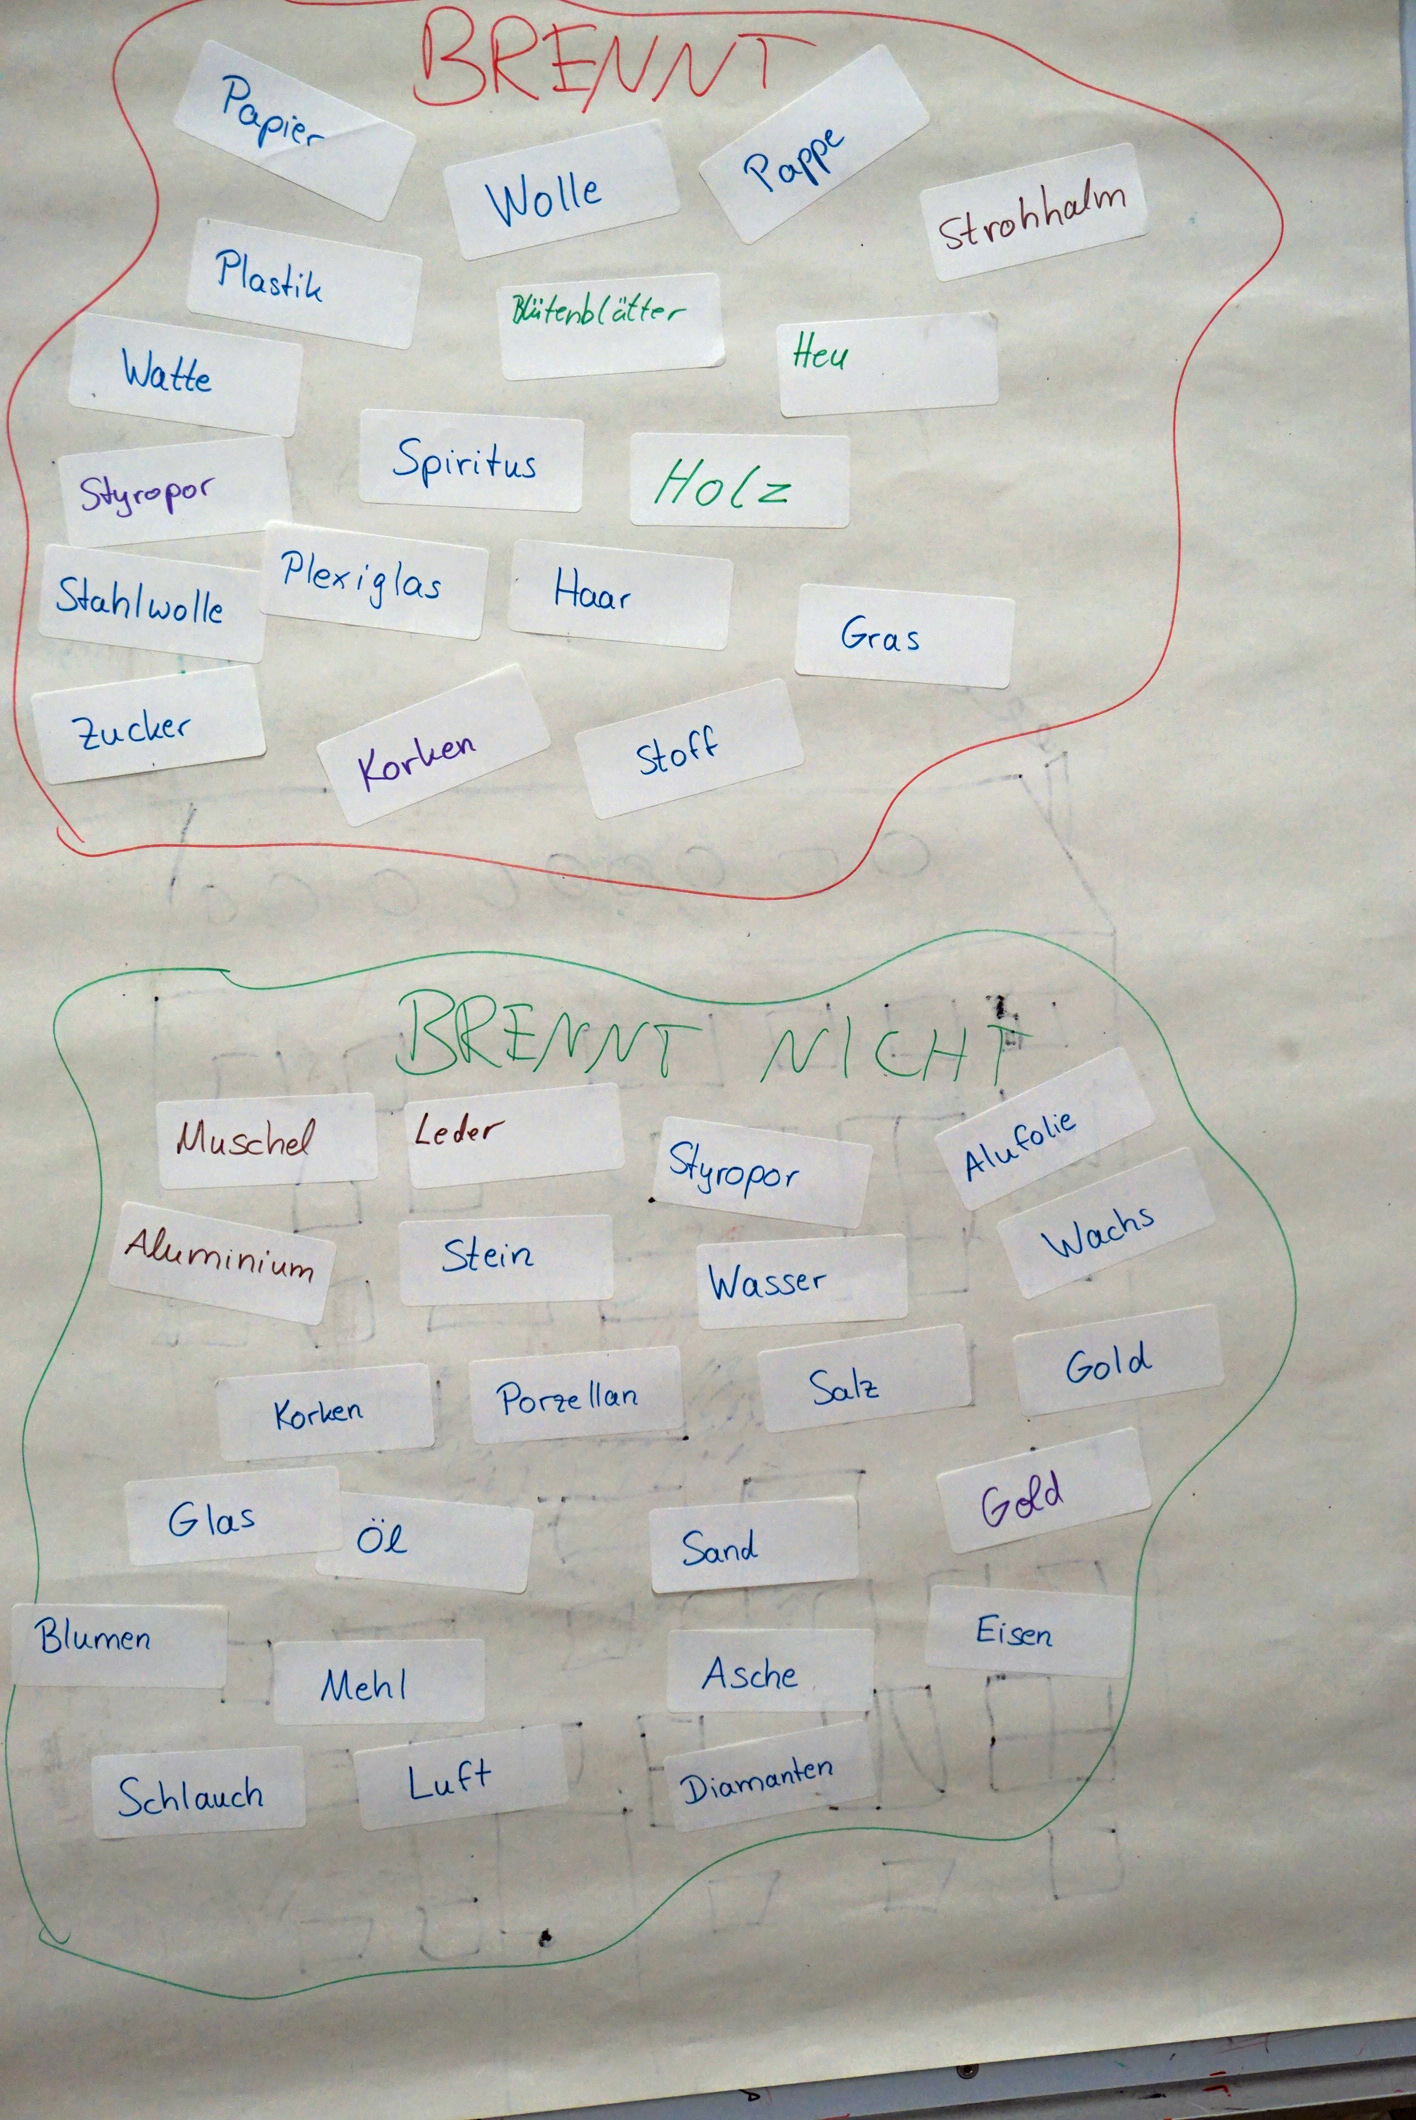 BRENNT
Papier
Wolle
Pappe
Strohhalm
Plastik
Blütenblätter
Heu
Watte
Spiritus
Holz
Styropor
Plexiglas
Haar
Stahlwolle
Gras
Zucker
Korken
Stoff
BRENNT NICHT
Muschel
Leder
Styropor
Alufolie
Aluminium
Stein
Wasser
Wachs
Korken
Porzellan
Salz
Gold
Glas
Öl
Sand
Gold
Blumen
Mehl
Asche
Eisen
Schlauch
Luft
Diamanten